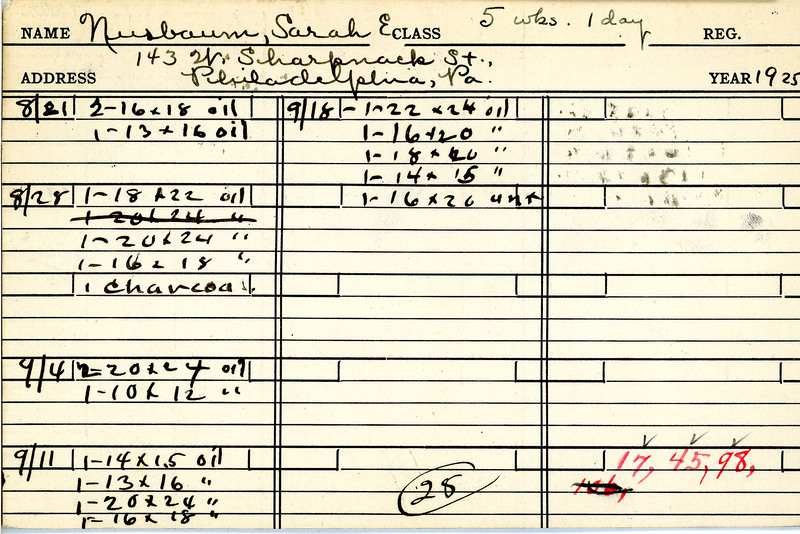 NAME Nusbaum, Sarah E CLASS 5 wks. 1 day REG.
143 W. Sharpnack St.,
ADDRESS Philadelphia, Pa. YEAR 1925
8/21 2-16x18 oil
1-13x16 oil
8/28 1-18x22 oil
1-20x24 "
1-20x24 "
1-16x18 "
1 charcoal.
9/4 2-20x24 oil
1-10x12 "
9/11 1-14x15 oil
1-13x16 "
1-20x24 "
1-16x18 "
9/18 1-22x24 oil
1-16x20 "
1-18x20 "
1-14x15 "
1-16x20
28
17, 45, 98,